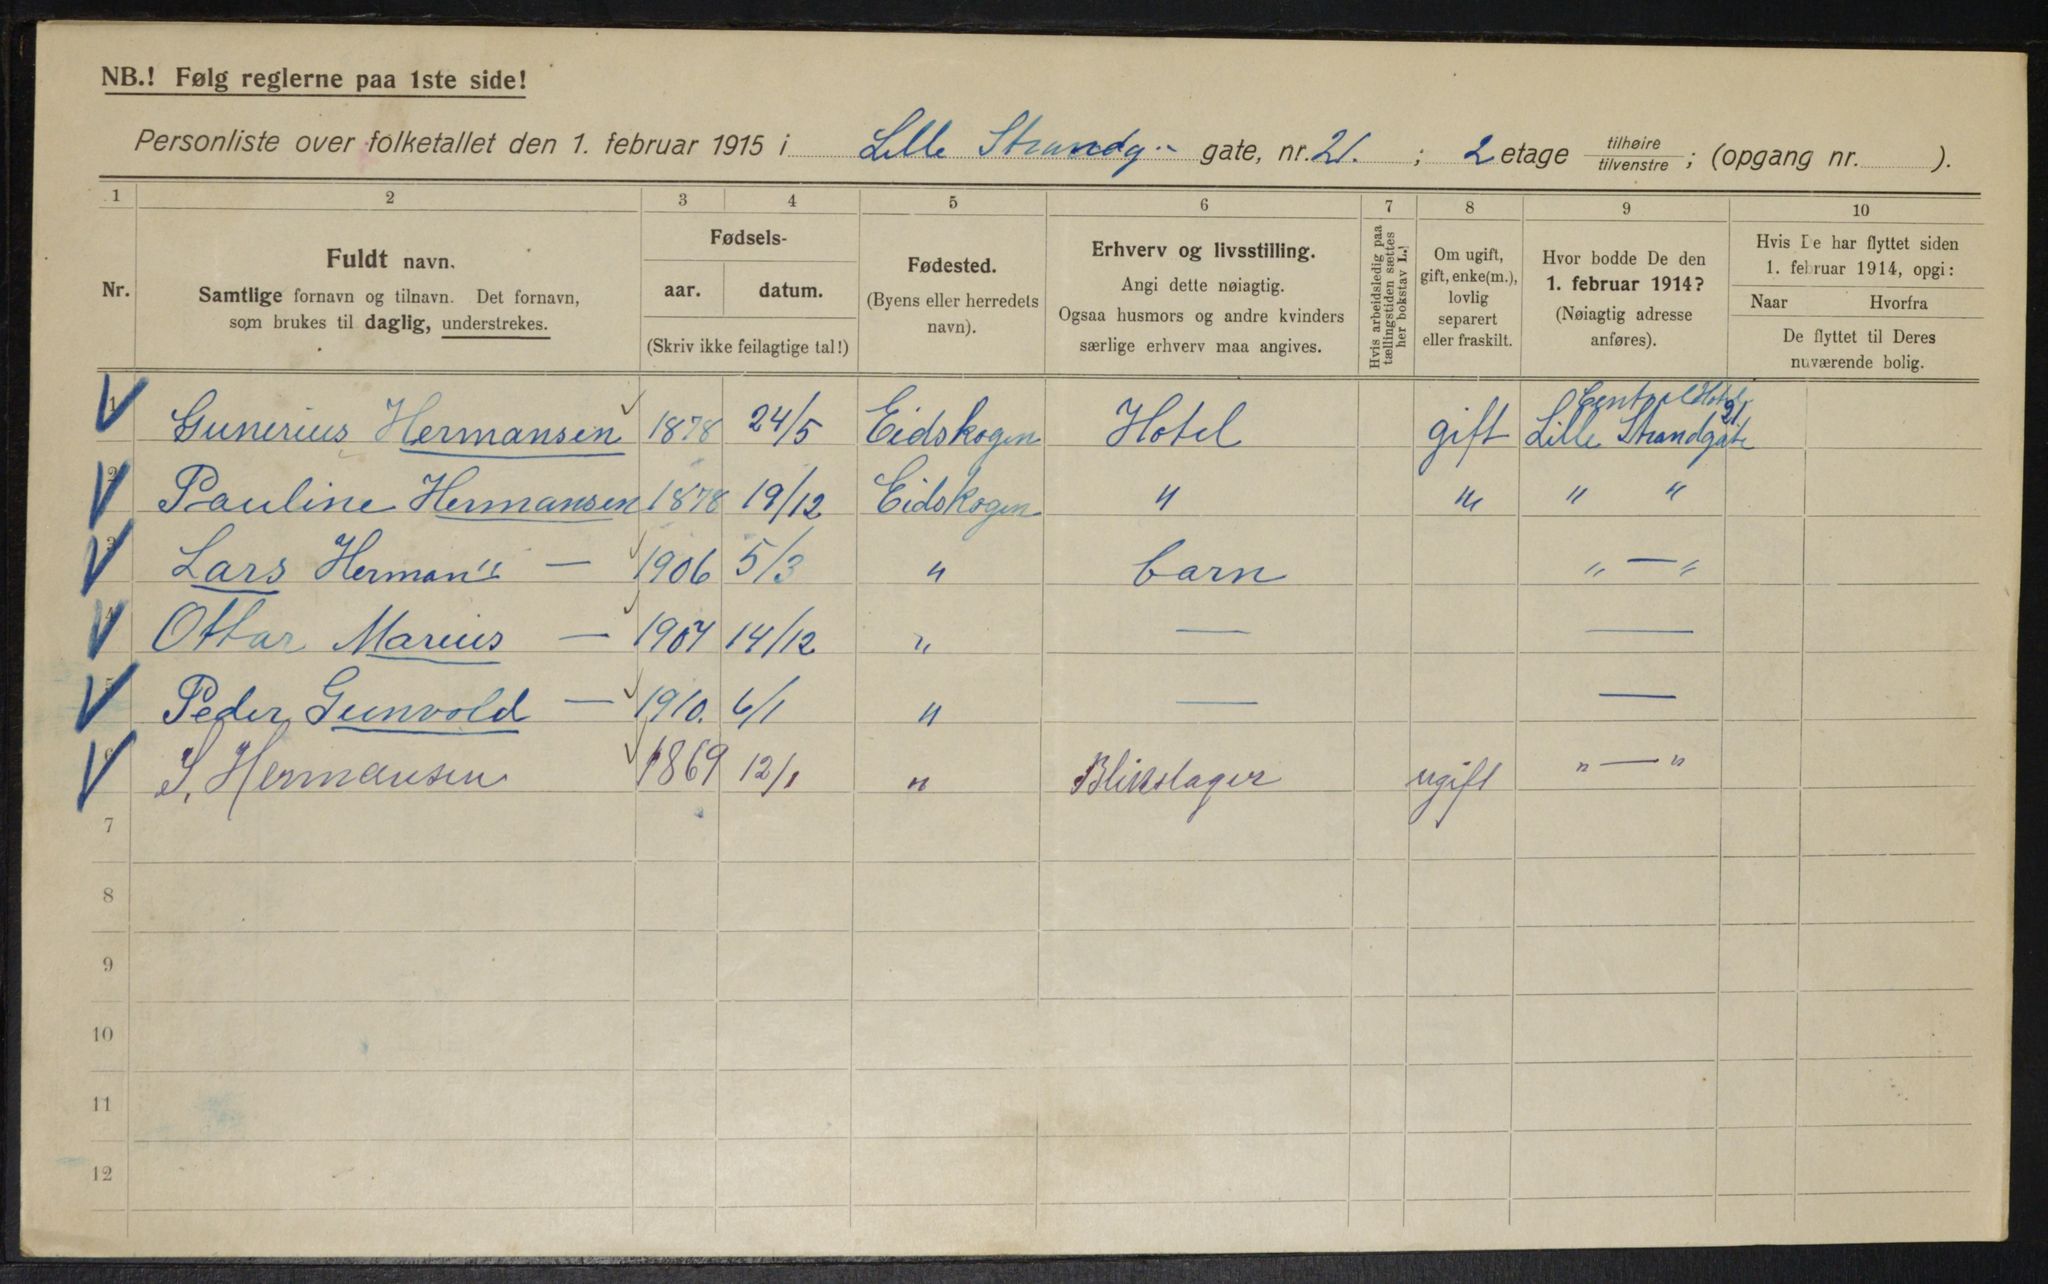 NB.! Følg reglerne paa 1ste side!
Personliste over folketallet den 1. februar 1915 i Lille Strandg.. gate, nr. 21. ; 2 etage tilhøire / tilvenstre ; (opgang nr. ).
1 2 3 4 5 6 7 8 9 10
Nr.
Fuldt navn.
Samtlige fornavn og tilnavn. Det fornavn,
som brukes til daglig, understrekes.
Fødsels-
aar. datum.
(Skriv ikke feilagtige tal!)
Fødested.
(Byens eller herredets
navn).
Erhverv og livsstilling.
Angi dette nøiagtig.
Ogsaa husmors og andre kvinders
særlige erhverv maa angives.
Hvis arbeidsledig paa
tællingstiden sættes
her bokstav L.
Om ugift,
gift, enke(m.),
lovlig
separert
eller fraskilt.
Hvor bodde De den
1. februar 1914?
(Nøiagtig adresse
anføres).
Hvis De har flyttet siden
1. februar 1914, opgi:
Naar Hvorfra
De flyttet til Deres
nuværende bolig.
Central Hotel
1 Gunerius Hermansen 1878 24/5 Eidskogen Hotel gift Lille Strandgate 21
2 Pauline Hermansen 1878 19/12 Eidskogen " " " "
3 Lars Herman " — 1906 5/3 " barn " — "
4 Ottar Marius — 1907 14/12 " — —
5 Peder Gunvold — 1910. 6/1 " — —
6 S. Hermansen 1869 12/1 " Blikslager ugift " — "
7
8
9
10
11
12